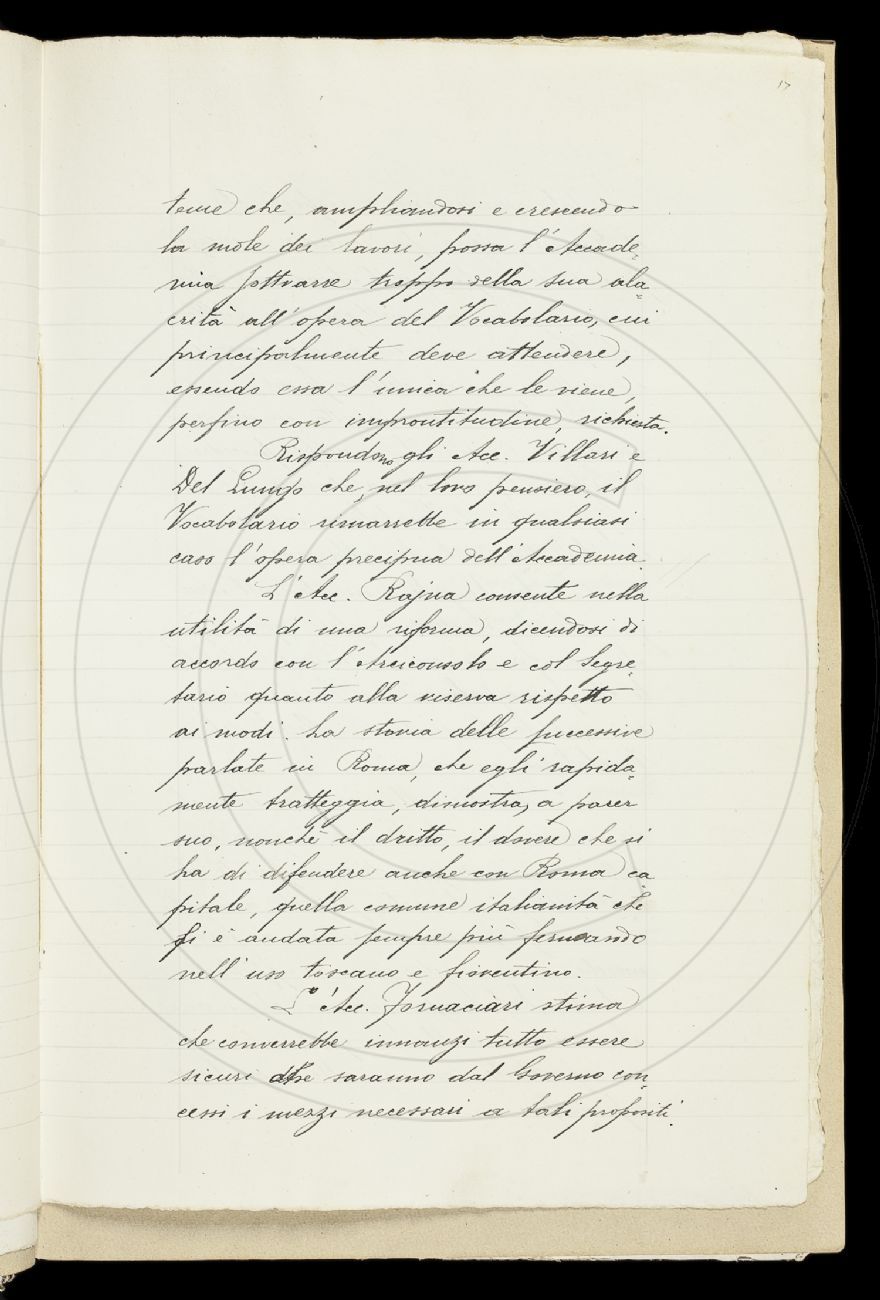 17
teme che, ampliandosi e crescendo
la mole dei lavori, possa l'Accade=
mia sottrarre troppo della sua ala=
crità all'opera del Vocabolario, cui
principalmente deve attendere,
essendo essa l'unica che le viene,
perfino con improntitudine, richiesta.
Rispondono gli Acc. Villari e
Del Lungo che, nel loro pensiero, il
Vocabolario rimarrebbe in qualsiasi
caso l'opera precipua dell'Accademia.
L'Acc. Rajna consente nella
utilità di una riforma, dicendosi di
accordo con l'Arciconsolo e col Segre=
tario quanto alla riserva rispetto
ai modi. La storia delle successive
parlate in Roma, che egli rapida=
mente tratteggia, dimostra, a parer
suo, nonchè il dritto, il dovere che si
ha di difendere anche con Roma ca
pitale, quella comune italianità che
si è andata sempre più fermando
nell'uso toscano e fiorentino.
L'Acc. Fornaciari stima
che converrebbe innanzi tutto essere
sicuri che saranno dal Governo con=
cessi i mezzi necessari a tali propositi.